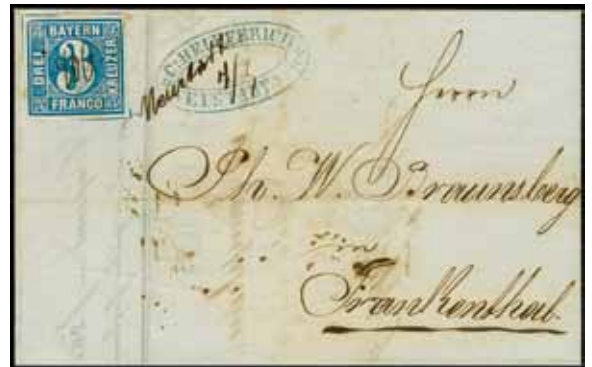 BAYERN
DREI
3
KREUZER
FRANCO
4/7
Herrn
Ph. W. Braunsberg
in
Frankenthal.